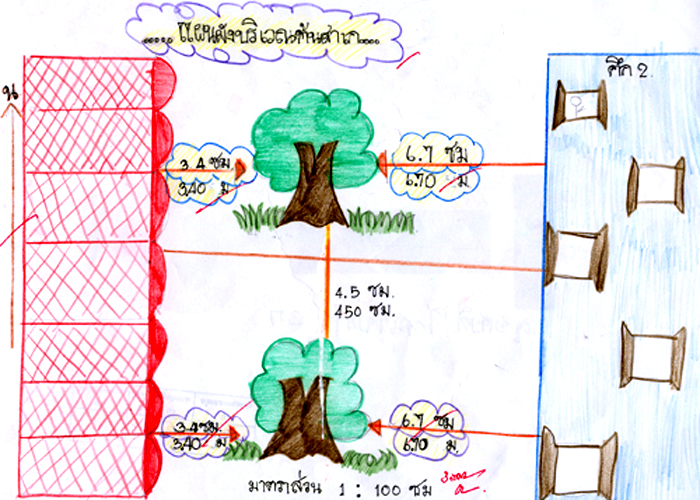 ..... แผนผังบริเวณต้นสาเก....
น
ตึก 2.
3.4 ซม.
3.40 ม
6.7 ซม
6.70 ม.
4.5 ซม.
450 ซม.
3.4 ซม.
3.40 ม
6.7 ซม
6.70 ม.
มาตราส่วน 1 : 100 ซม